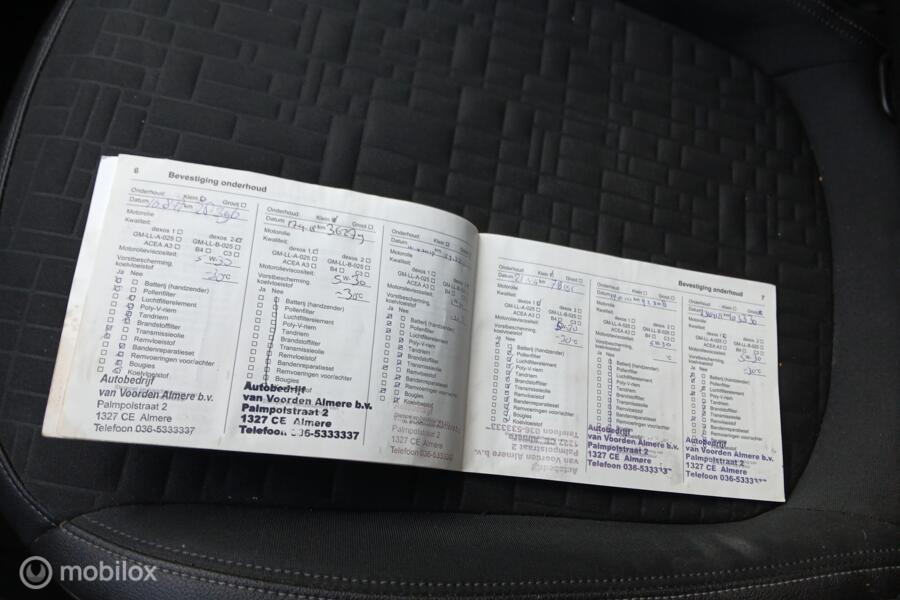 6 Bevestiging onderhoud
Onderhoud: Klein Groot
Datum km
Motorolie
Kwaliteit:
dexos 1
dexos 2
GM-LL-A-025 GM-LL-B-025
ACEA A3 B4 C3
Motorolieviscositeit: 5W-30
Vorstbescherming,
koelvloeistof -30°C
Ja Nee
Batterij (handzender)
Pollenfilter
Luchtfilterelement
Poly-V-riem
Tandriem
Brandstoffilter
Transmissieolie
Remvloeistof
Bandenreparatieset
Remvoeringen voor/achter
Bougies
Koelvloeistof
Autobedrijf
van Voorden Almere b.v.
Palmpolstraat 2
1327 CE Almere
Telefoon 036-5333337
Onderhoud: Klein Groot
Datum km 36279
Motorolie
Kwaliteit:
dexos 1
dexos 2
GM-LL-A-025 GM-LL-B-025
ACEA A3 B4 C3
Motorolieviscositeit: 5W-30
Vorstbescherming,
koelvloeistof
Ja Nee
Batterij (handzender)
Pollenfilter
Luchtfilterelement
Poly-V-riem
Tandriem
Brandstoffilter
Transmissieolie
Remvloeistof
Bandenreparatieset
Remvoeringen voor/achter
Bougies
Autobedrijf
van Voorden Almere b.v.
Palmpolstraat 2
1327 CE Almere
Telefoon 036-5333337
Onderhoud: Klein Groot
Datum km
Motorolie
Kwaliteit:
dexos 1
dexos 2
GM-LL-A-025 GM-LL-B-025
ACEA A3 B4 C3
Motorolieviscositeit:
Vorstbescherming,
koelvloeistof
Ja Nee
Batterij (handzender)
Pollenfilter
Luchtfilterelement
Poly-V-riem
Tandriem
Brandstoffilter
Transmissieolie
Remvloeistof
Bandenreparatieset
Remvoeringen voor/achter
Bougies
Koelvloeistof
Palmpolstraat 2
1327 CE Almere
Telefoon 036-533333
Onderhoud: Klein Groot
Datum km
Motorolie
Kwaliteit:
dexos 1
dexos 2
GM-LL-A-025 GM-LL-B-025
ACEA A3 B4 C3
Motorolieviscositeit:
Vorstbescherming,
koelvloeistof
Ja Nee
Batterij (handzender)
Pollenfilter
Luchtfilterelement
Poly-V-riem
Tandriem
Brandstoffilter
Transmissieolie
Remvloeistof
Bandenreparatieset
Remvoeringen voor/achter
Bougies
Koelvloeistof
Autobedrijf
van Voorden Almere b.v.
Palmpolstraat 2
1327 CE Almere
Telefoon 036-53333
Onderhoud: Klein Groot
Datum km
Motorolie
Kwaliteit:
dexos 1
dexos 2
GM-LL-A-025 GM-LL-B-025
ACEA A3 B4 C3
Motorolieviscositeit: 5W-30
Vorstbescherming,
koelvloeistof °C
Ja Nee
Batterij (handzender)
Pollenfilter
Luchtfilterelement
Poly-V-riem
Tandriem
Brandstoffilter
Transmissieolie
Remvloeistof
Bandenreparatieset
Remvoeringen voor/achter
Autobedrijf
van Voorden Almere b.v.
Palmpolstraat 2
1327 CE Almere
Telefoon 036-53333
Bevestiging onderhoud 7
Onderhoud: Klein Groot
Datum km
Motorolie
Kwaliteit:
dexos 1
dexos 2
GM-LL-A-025 GM-LL-B-025
ACEA A3 B4 C3
Motorolieviscositeit: 5W-30
Vorstbescherming,
koelvloeistof
Ja Nee
Batterij (handzender)
Pollenfilter
Luchtfilterelement
Poly-V-riem
Tandriem
Brandstoffilter
Transmissieolie
Remvloeistof
Bandenreparatieset
Autobedrijf
van Voorden Almere b.v.
Palmpolstraat 2
1327 CE Almere
Telefoon 036-5333
mobilox